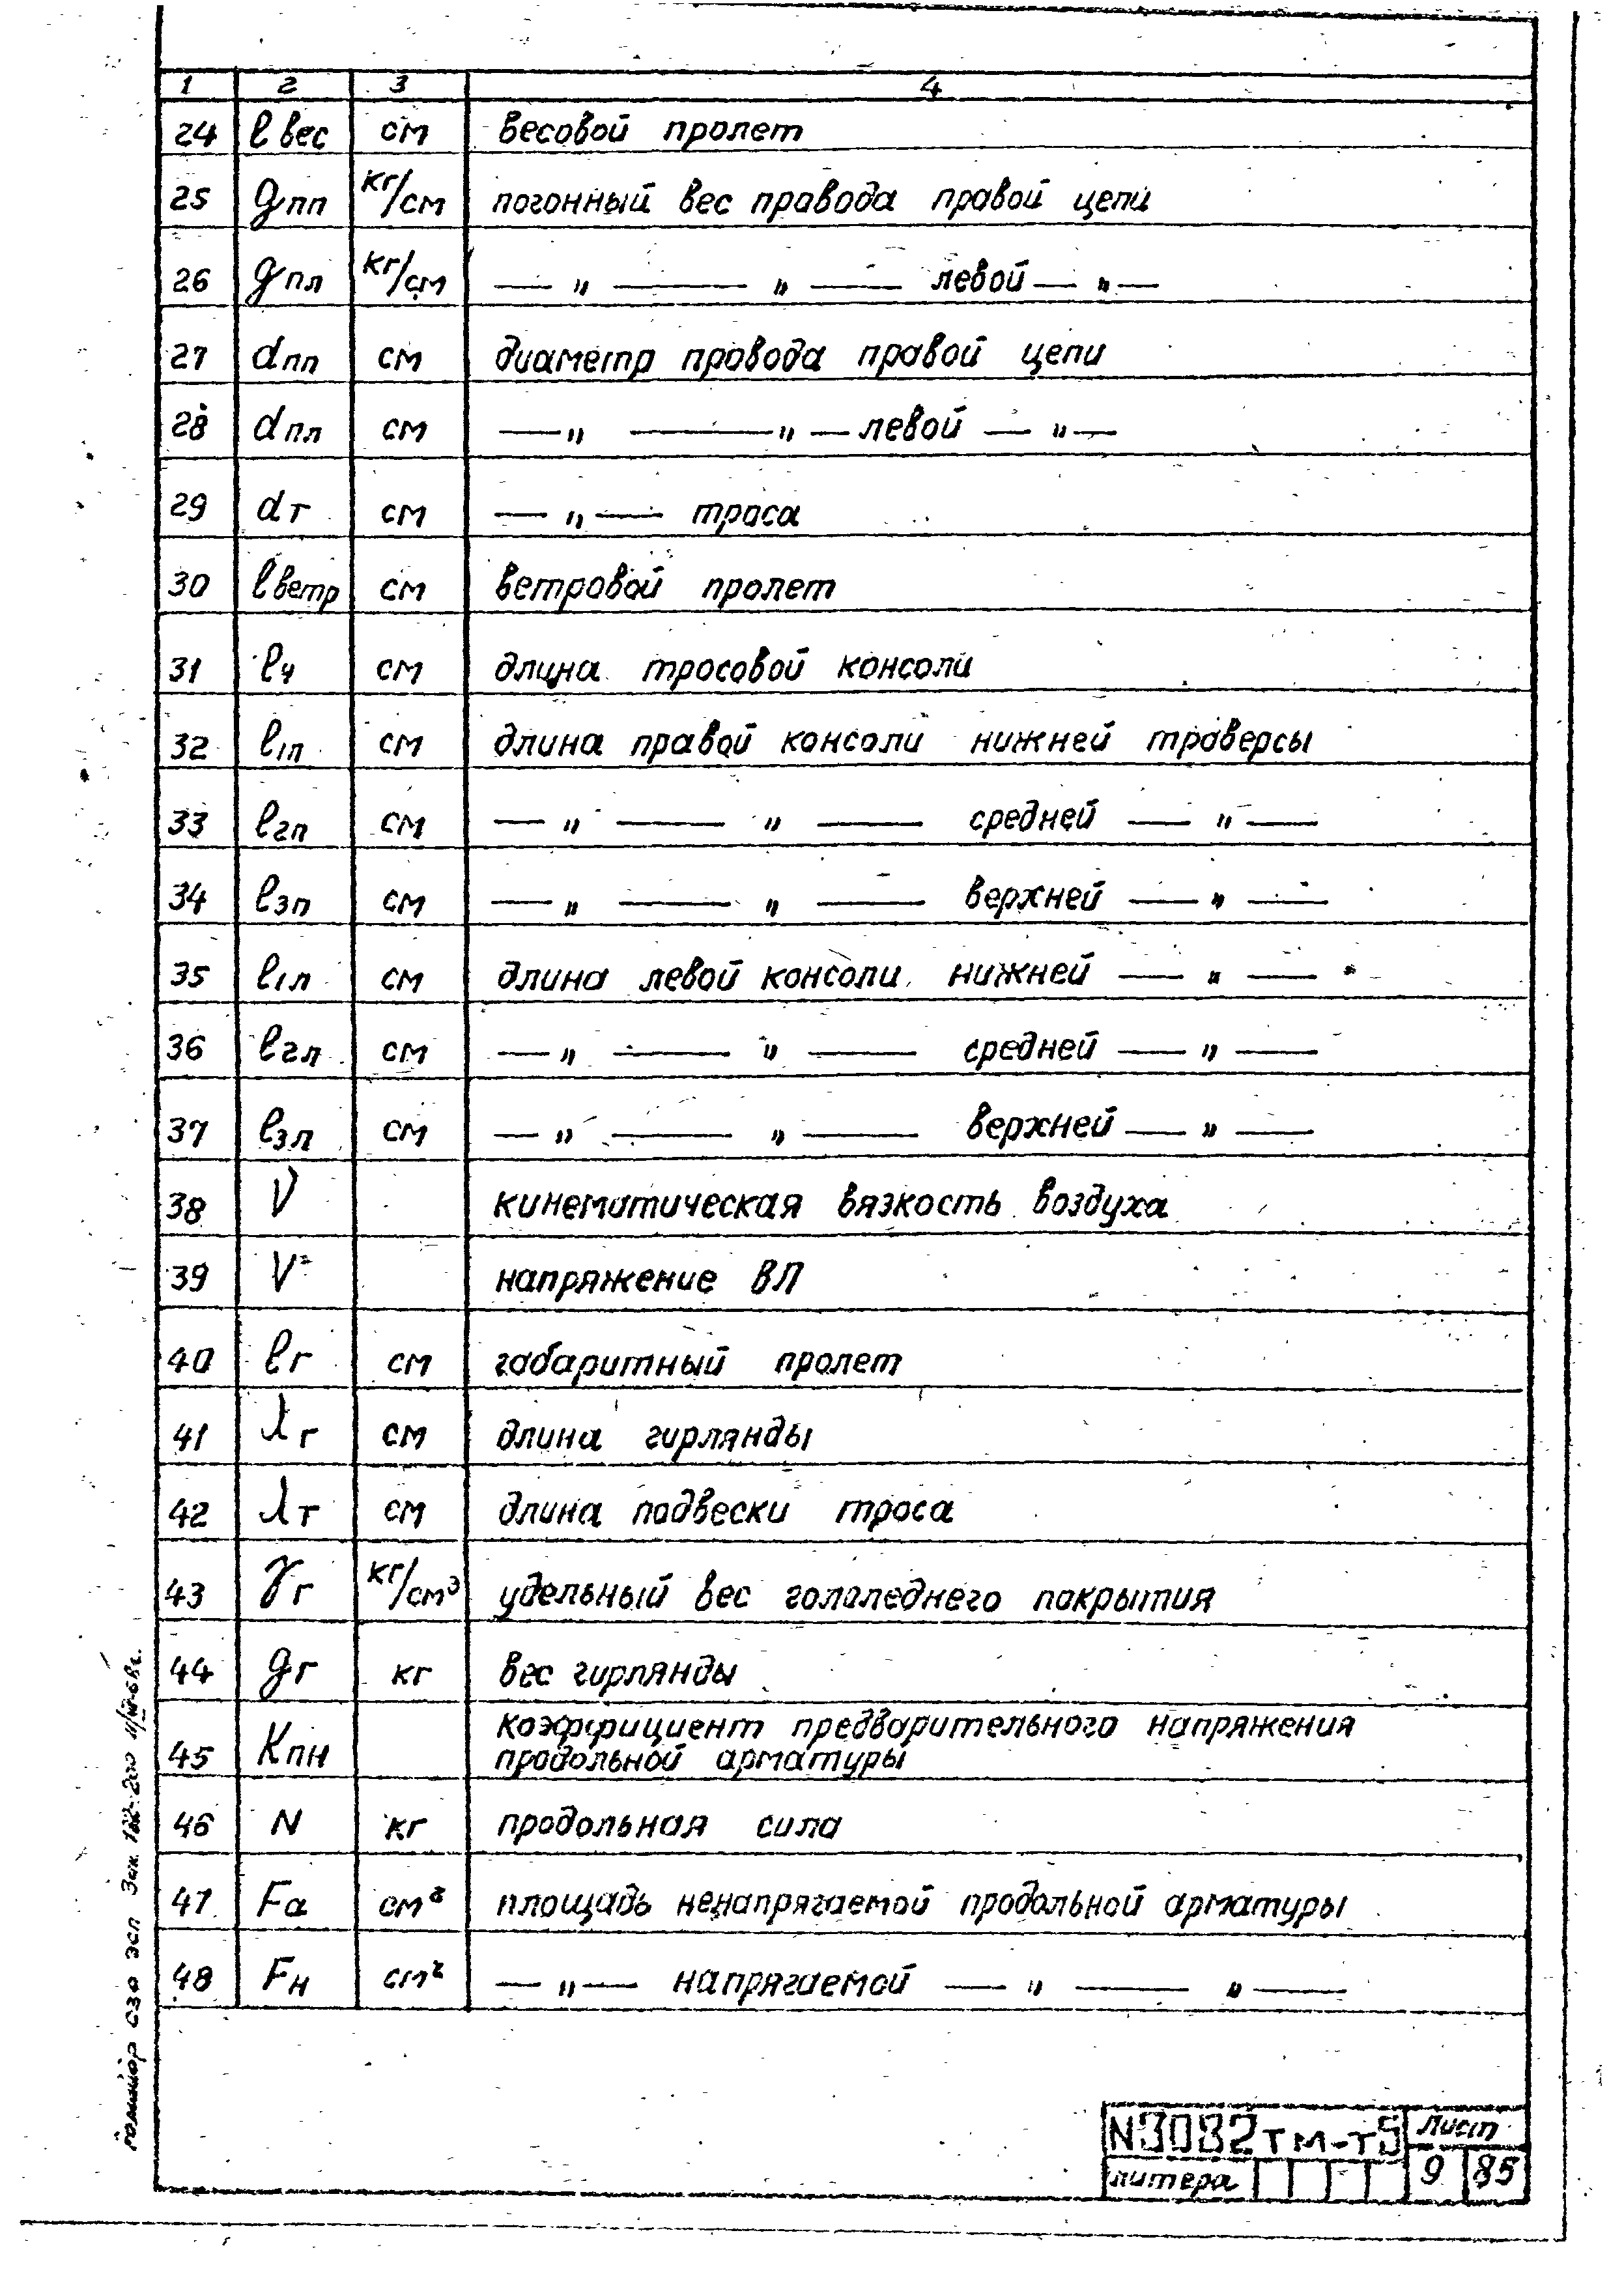 1 2 3 4
24 ℓвес см весовой пролет
25 gпп кг/см погонный вес провода правой цепи
26 gпл кг/см — „ — „ — левой — „ —
27 dпп см диаметр провода правой цепи
28 dпл см — „ — „ — левой — „ —
29 dт см — „ — троса
30 ℓветр см ветровой пролет
31 ℓч см длина тросовой консоли
32 ℓ1п см длина правой консоли нижней траверсы
33 ℓ2п см — „ — „ — средней — „ —
34 ℓ3п см — „ — „ — верхней — „ —
35 ℓ1л см длина левой консоли нижней — „ —
36 ℓ2л см — „ — „ — средней — „ —
37 ℓ3л см — „ — „ — верхней — „ —
38 ν кинематическая вязкость воздуха
39 V напряжение ВЛ
40 ℓг см габаритный пролет
41 λг см длина гирлянды
42 λт см длина подвески троса
43 γг кг/см³ удельный вес гололедного покрытия
44 gг кг вес гирлянды
45 Kпн коэффициент предварительного напряжения
продольной арматуры
46 N кг продольная сила
47 Fа см² площадь ненапрягаемой продольной арматуры
48 Fн см² — „ — напрягаемой — „ — „ —
N3082тм-т5 Лист
литера 9 85
сзо эсп Зак.